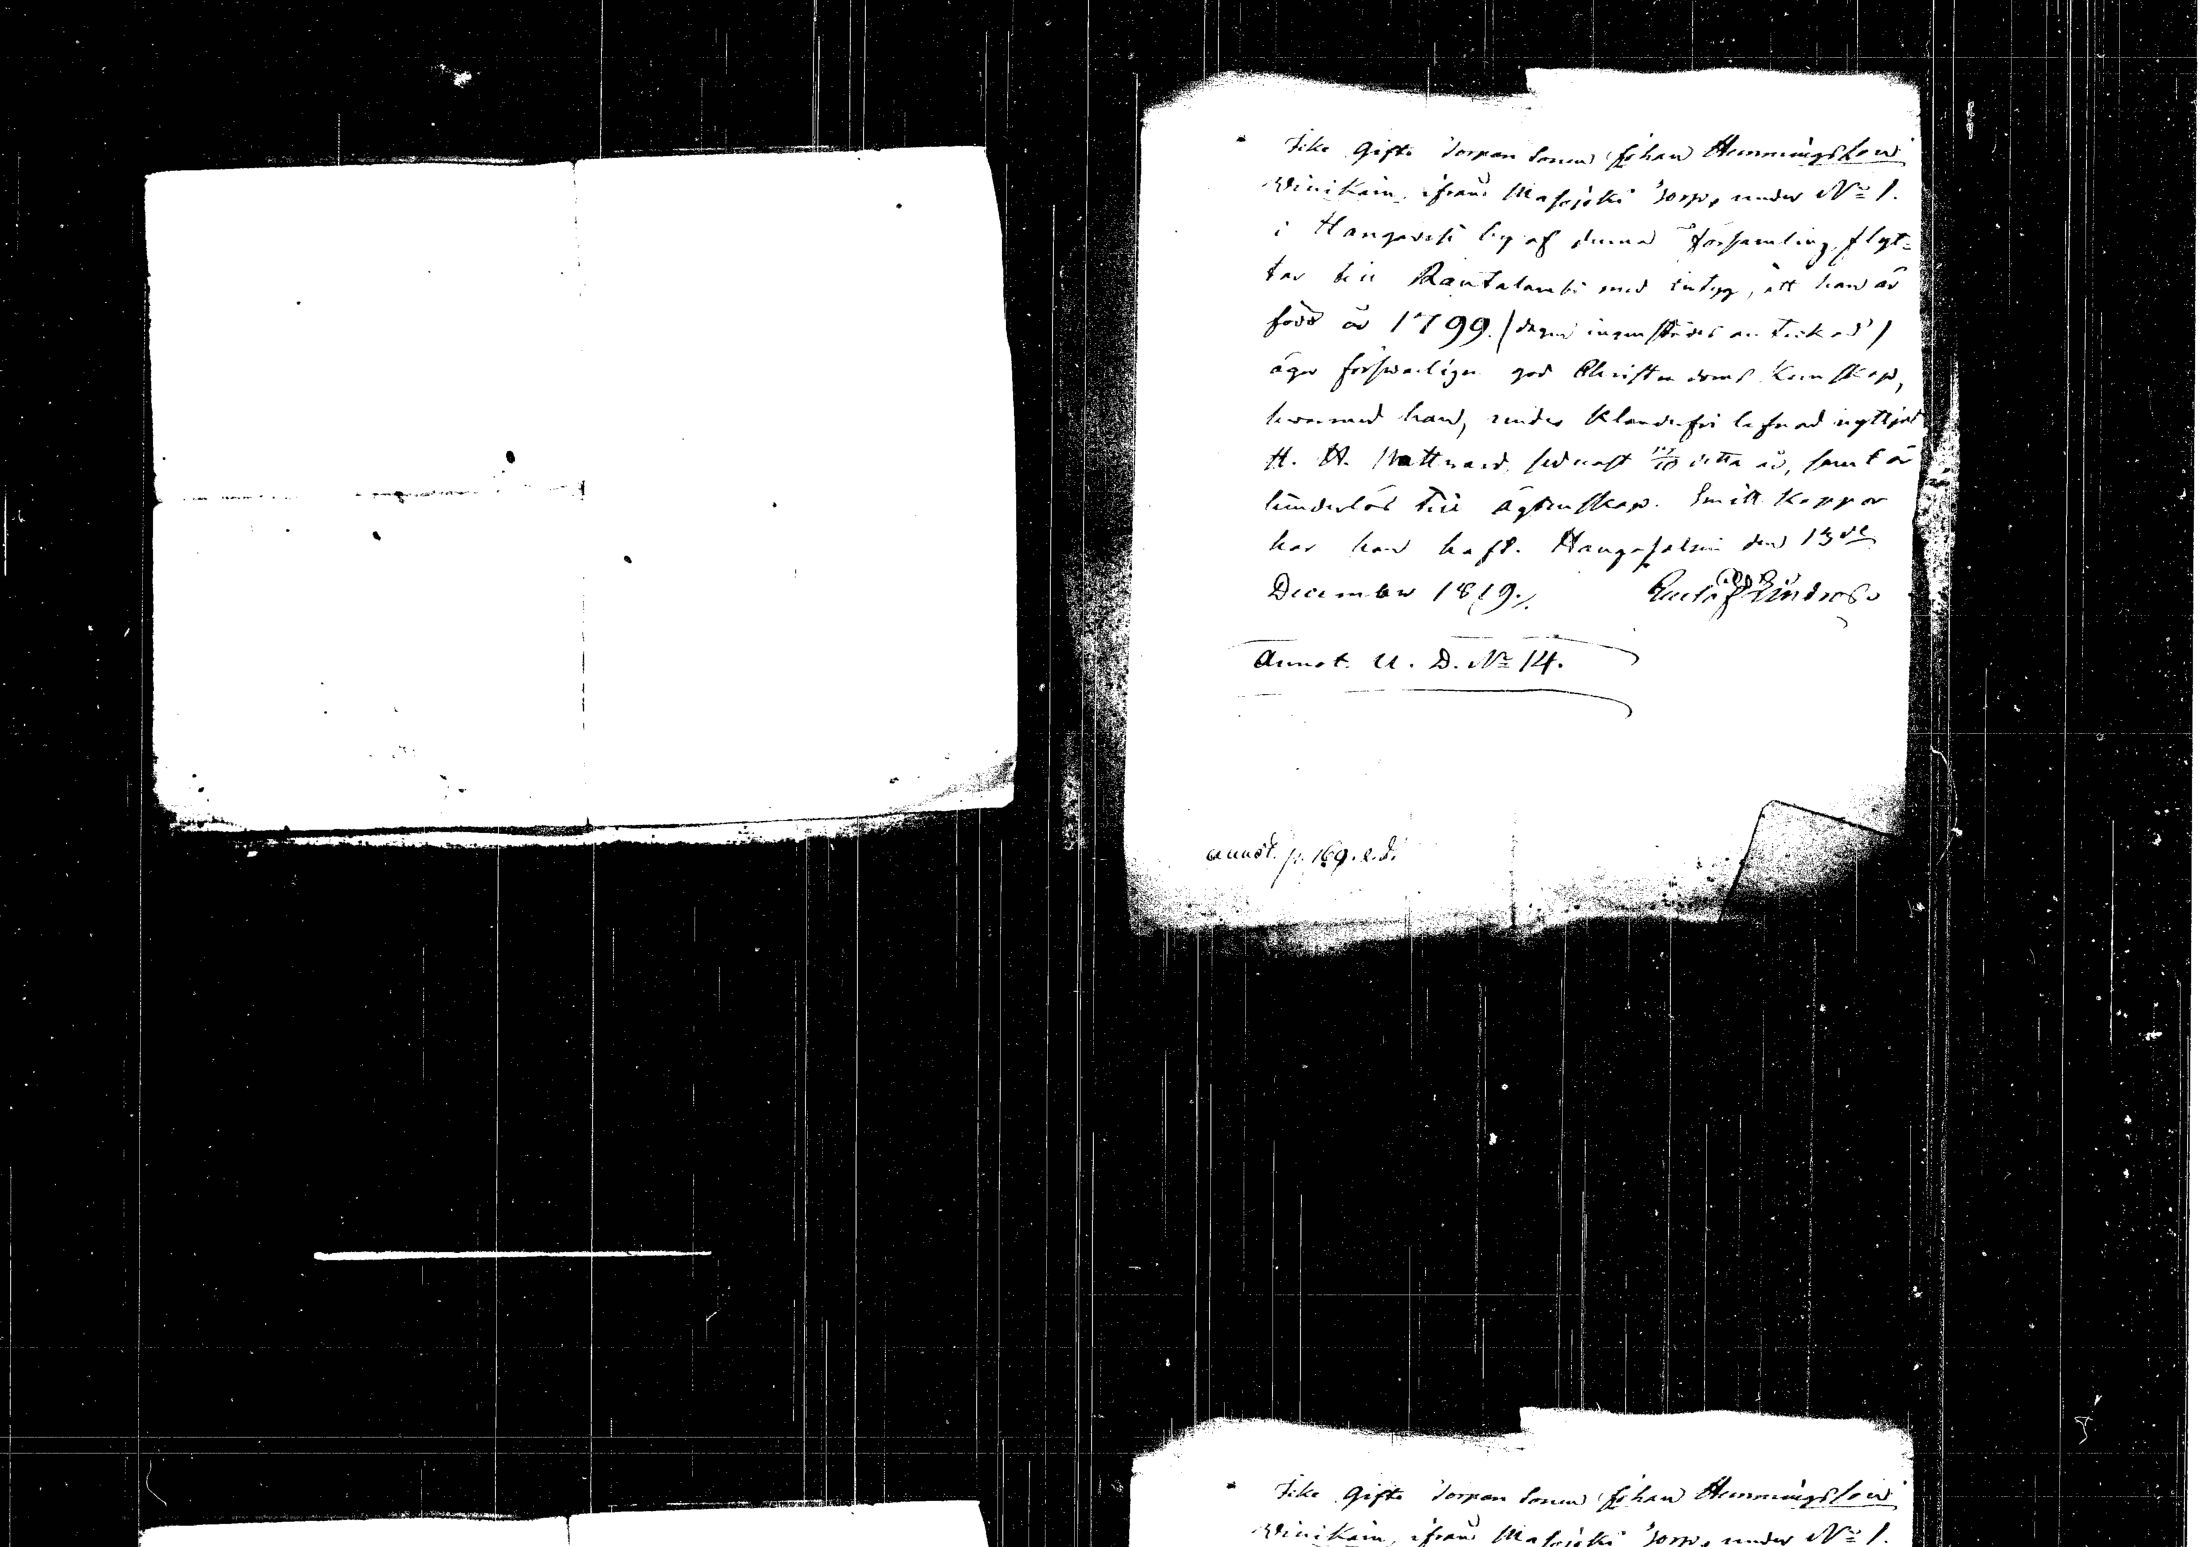 Icke Gifte Torpare Sonen Johan Hemmingsson
Winikain, ifrån Masojoki Torp, under N:o 1.
i Hangaristi by af denna Församling, flyt=
tar till Rautalambi med intyg, att han är
född år 1799. (dagen ingenstädes antecknad)
äger förswarligen god Christendoms Kunskap,
hwarmed han, under Klanderfri lefnad nyttjat
H. H. Nattward, sednast detta år, samt är
hinderlös till ägtenskap. Smitt Koppor
har han haft. Haugasalmi den 13de
December 1819. Gustaf
Annot. U. D. N:o 14.
annot. p. 169.
Icke Gifte Torpare Sonen Johan Hemmingsson
Winikain, ifrån Masojoki Torp, under N:o 1.